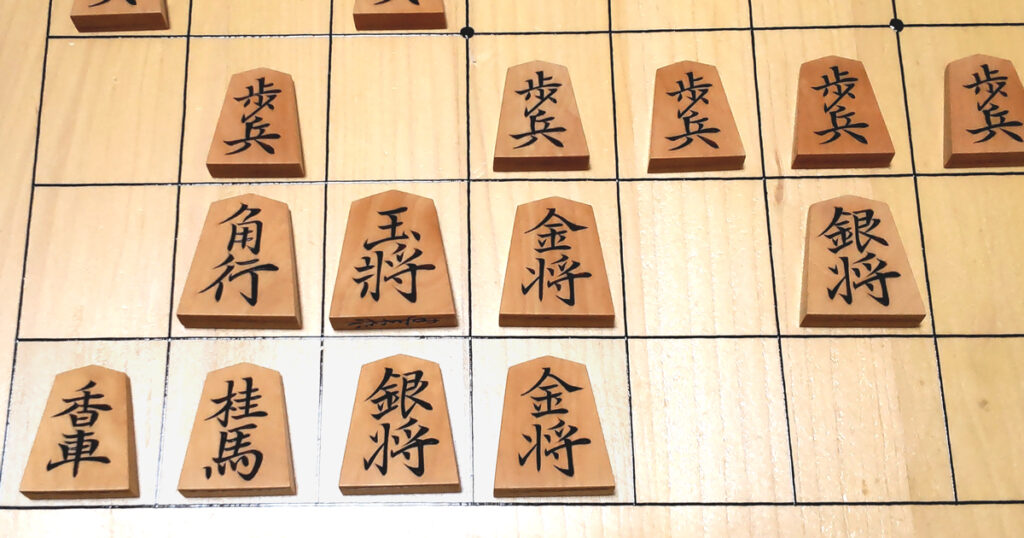 歩兵
歩兵
歩兵
歩兵
歩兵
角行
玉将
金将
銀将
香車
桂馬
銀将
金将